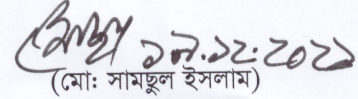 ১৯.১২.২০২১
(মোঃ সামছুল ইসলাম)